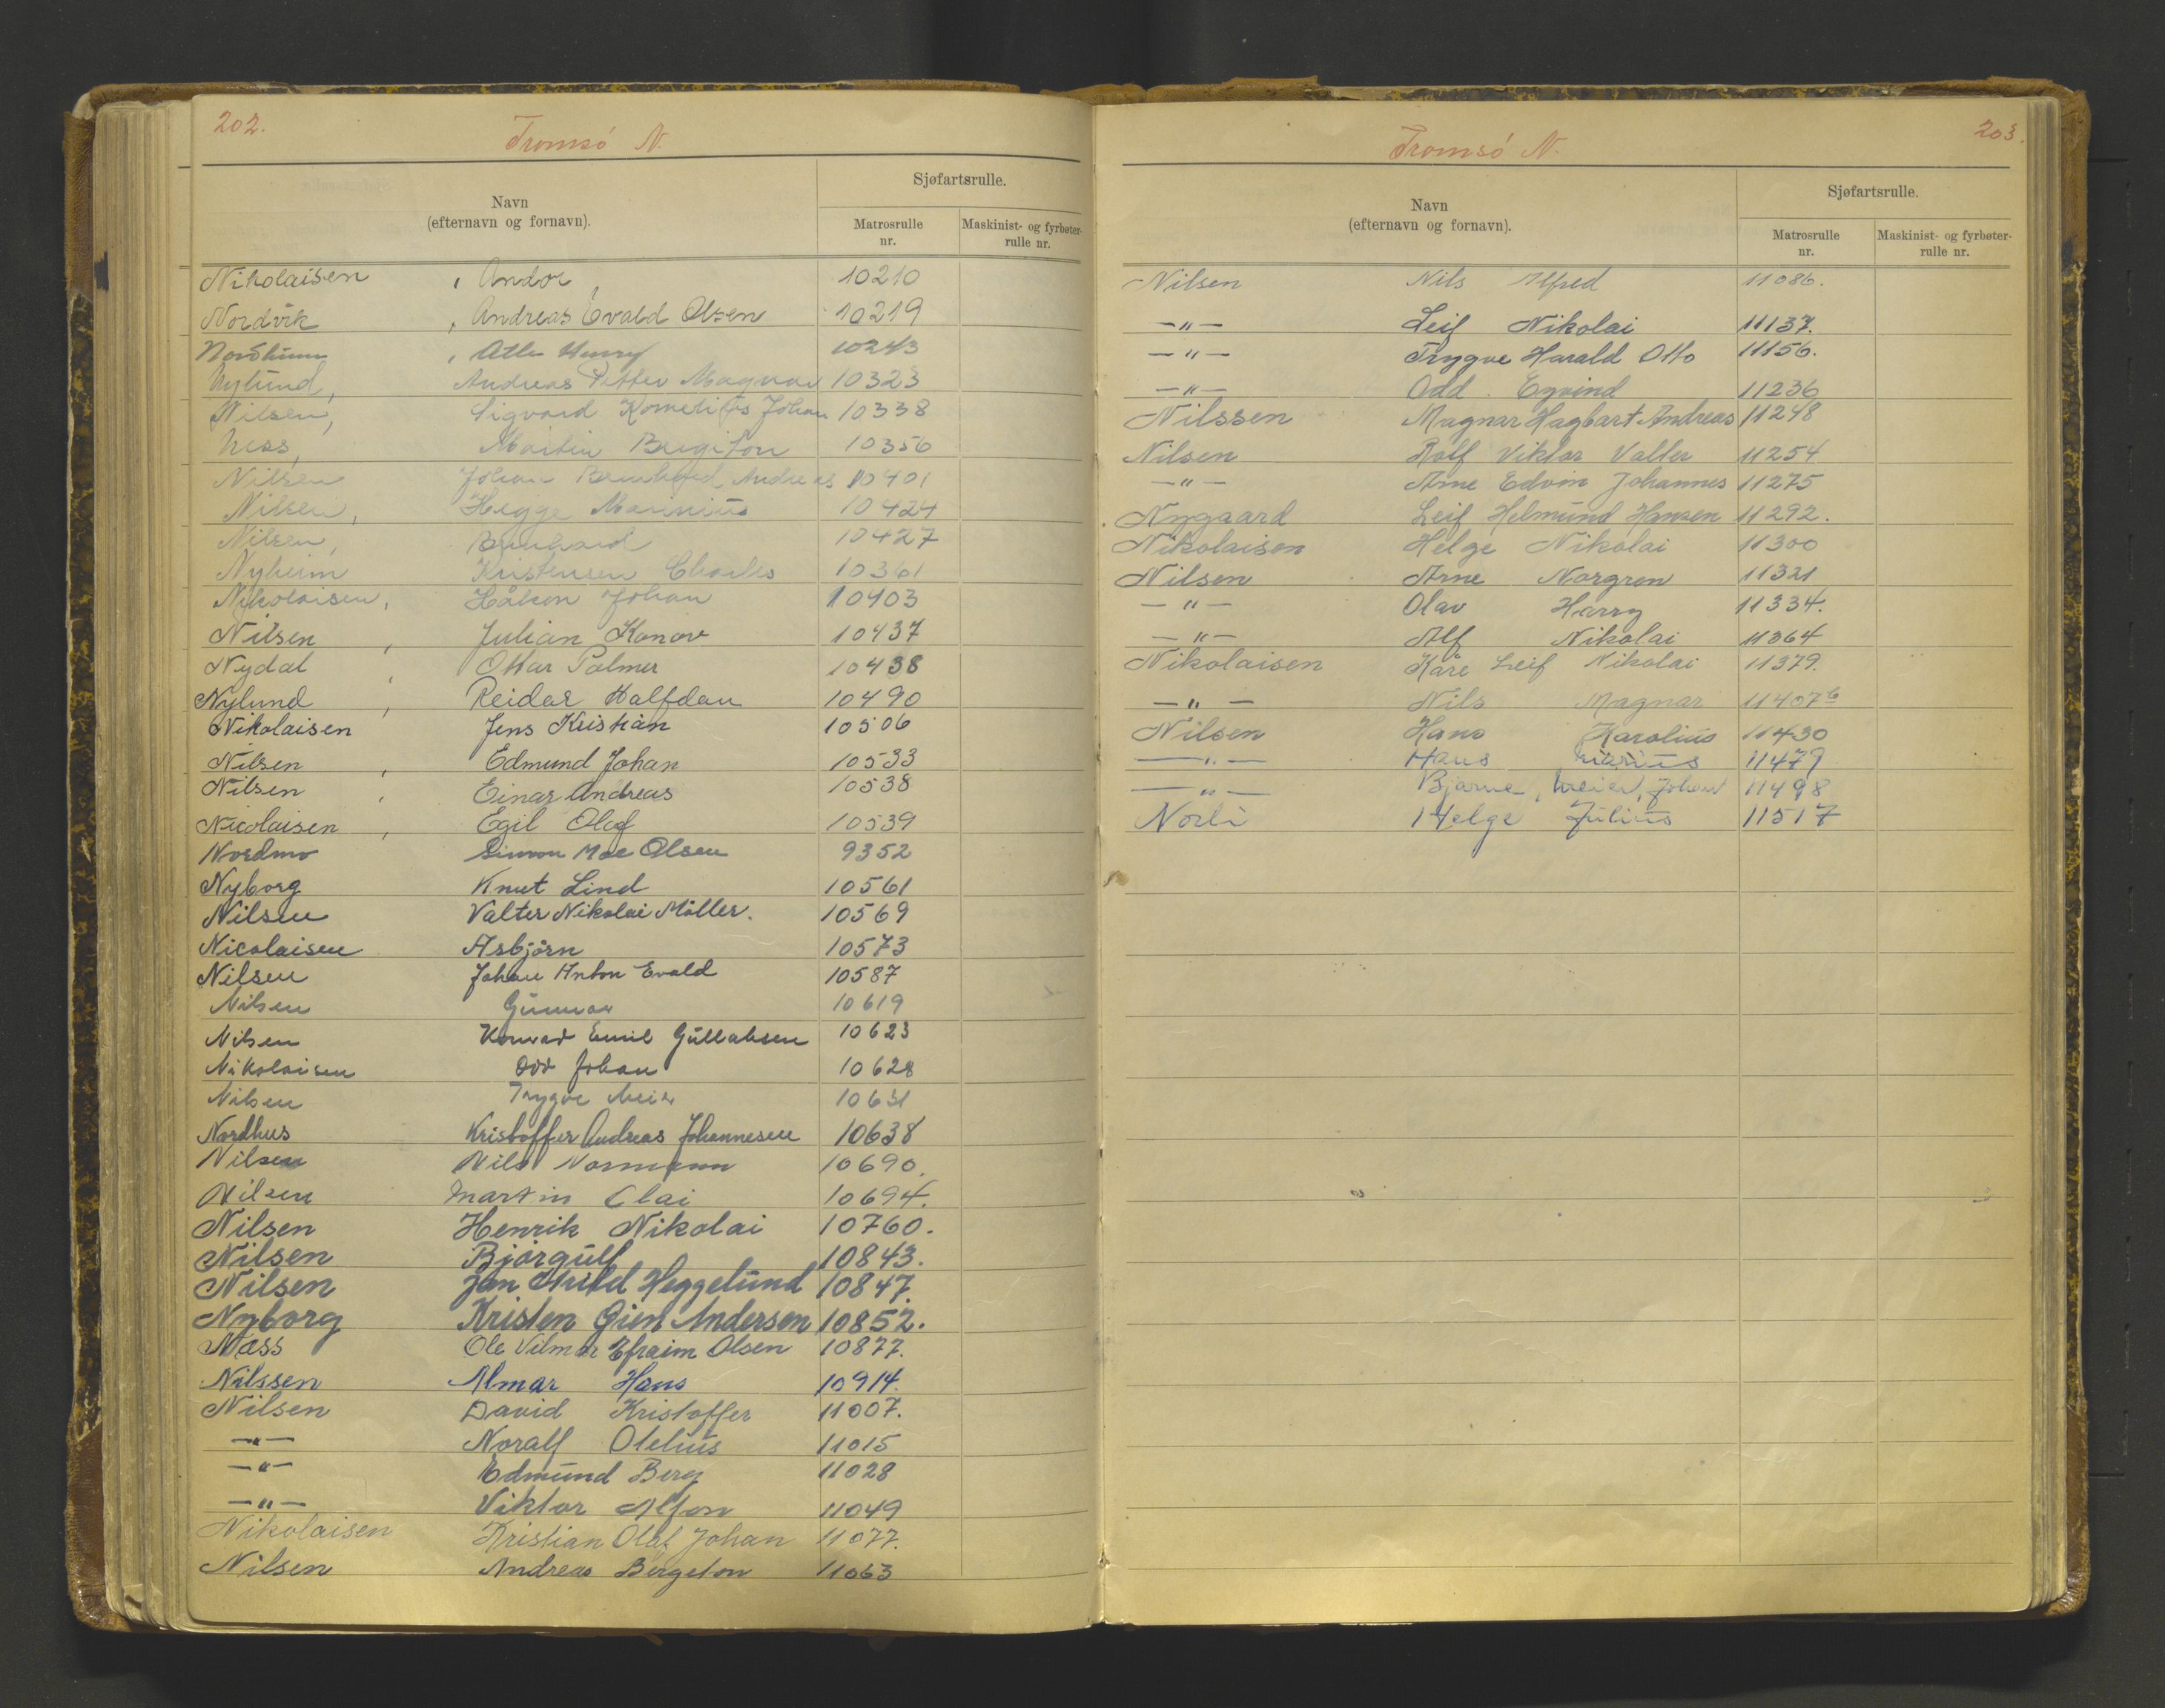 202.
Tromsø N.
Navn
(efternavn og fornavn).
Sjøfartsrulle.
Matrosrulle
nr.
Maskinist- og fyrbøter-
rulle nr.
Nikolaisen, Andor 10210
Nordvik, Andreas Evald Olsen 10219
Nordheim, Atle Henry 10243
Nylund, Andreas Petter Magnar 10323
Nilsen, Sigvard Kornelius Johan 10338
Ness, Martin Bergiton 10350
Nilsen Johan Bernhard Andreas 10401
Nilsen, Hegge Marinius 10424
Nilsen, Bernhard 10427
Nyheim Kristensen Charles 10361
Nikolaisen, Håkon Johan 10403
Nilsen, Julian Konow 10437
Nydal, Ottar Palmer 10438
Nylund, Reidar Halfdan 10490
Nikolaisen Jens Kristian 10506
Nilsen, Edmund Johan 10533
Nilsen, Einar Andreas 10538
Nicolaisen, Egil Olaf 10539
Nordmo Simon Moe Olsen 9352
Nyborg Knut Lind 10561
Nilsen Valter Nikolai Möller. 10569
Nicolaisen Asbjörn 10573
Nilsen Johan Anton Evald 10587
Nilsen Gunnar 10619
Nilsen Konrad Emil Gullaksen 10623
Nikolaisen Odd Johan 10628
Nilsen Trygve Meier 10631
Nordhus Kristoffer Andreas Johannesen 10638
Nilsen Nils Normann 10690.
Nilsen Martin Olai 10694.
Nilsen Henrik Nikolai 10760.
Nilsen Bjørgulf 10843.
Nilsen Jan Heggelund 10847.
Nyborg Kristen Gien Andersen 10852.
Næss Ole Vilmar Efraim Olsen 10877.
Nilssen Almar Hans 10914.
Nilsen David Kristoffer 11007.
—"— Noralf Otelius 11015
—"— Edmund Berg 11028
—"— Viktor Alfon 11049
Nikolaisen Kristian Olaf Johan 11077.
Nilsen Andreas Bergeton 11063
203.
Tromsø N.
Navn
(efternavn og fornavn).
Sjøfartsrulle.
Matrosrulle
nr.
Maskinist- og fyrbøter-
rulle nr.
Nilsen Nils Alfred 11086.
—"— Leif Nikolai 11137.
—"— Trygve Harald Otto 11156.
—"— Odd Eyvind 11236
Nilssen Magnar Hagbart Andreas 11248
Nilsen Rolf Viktor Valter 11254
—"— Arne Edvin Johannes 11275
Nygaard Leif Helmund Hansen 11292.
Nikolaisen Helge Nikolai 11300
Nilsen Arne Norgren 11321
—"— Olav Harry 11334.
—"— Alf Nikolai 11364
Nikolaisen Kåre Leif Nikolai 11379.
—"— Nils Magnar 11407b
Nilsen Hans Karolius 11430
—"— Hans Marius 11479
—"— Bjarne, Meier, Johan 11498
Norli Helge Julius 11517